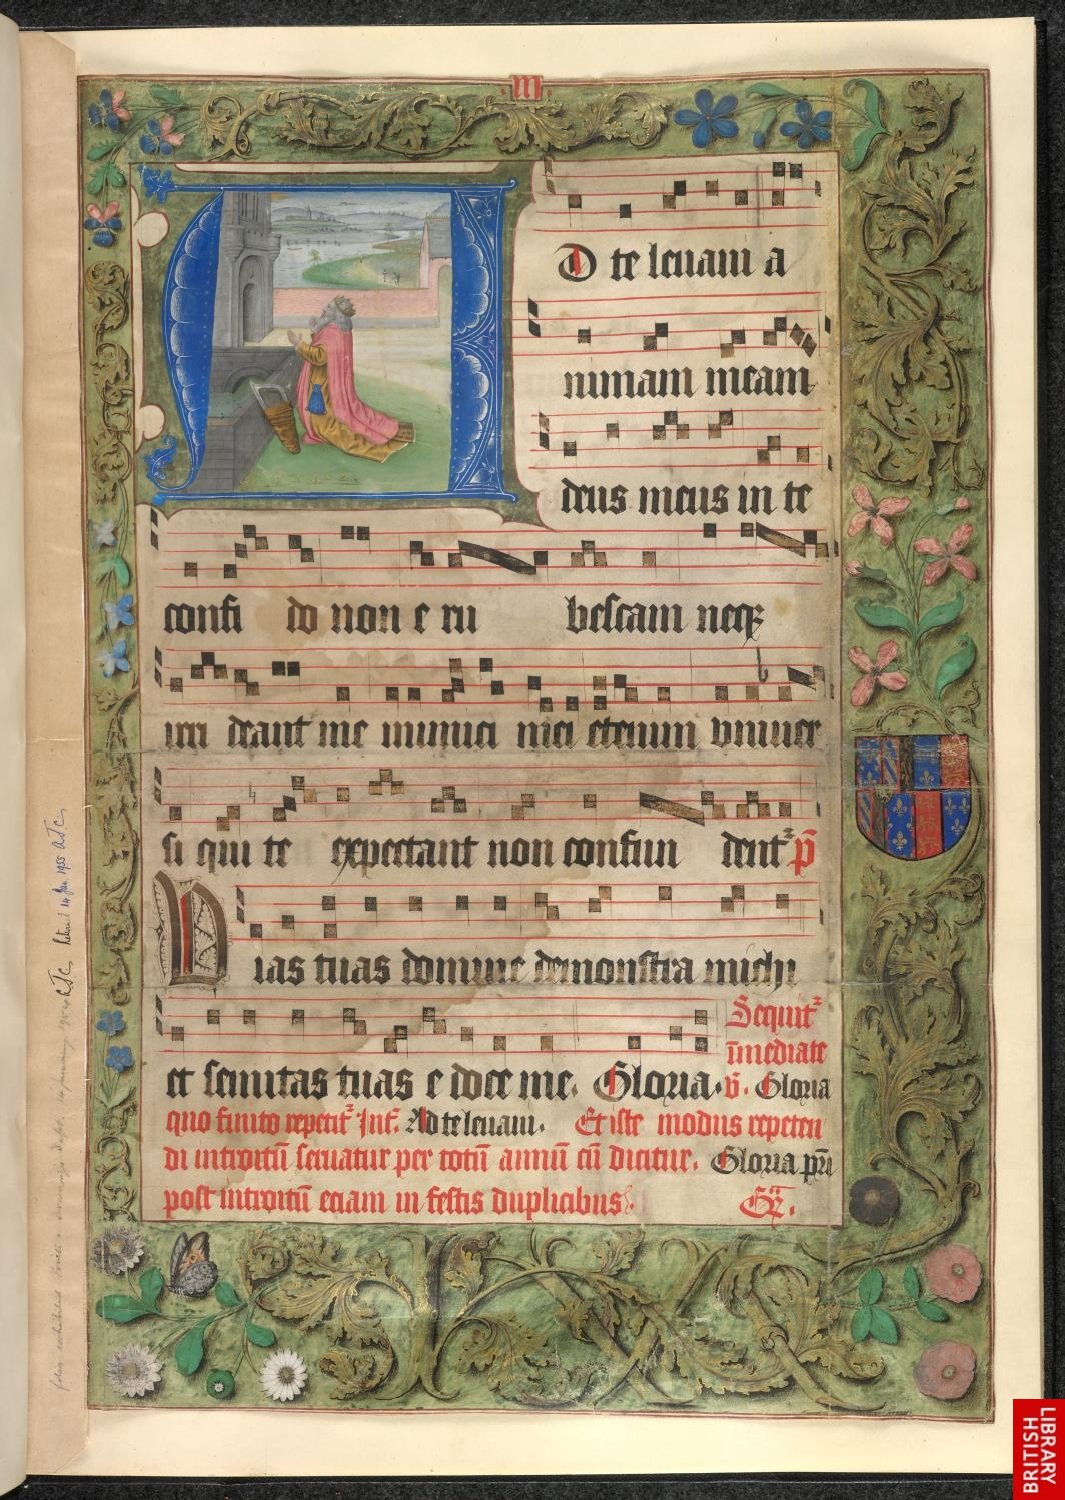 III
D te leuam a
nimam meam
deus meus in te
confi do non e ru bescam neqꝫ
irri deant me inimici mei etenim vniuer
si qui te expectant non confun dent² p̄
Vias tuas domine demonstra michi
et semitas tuas e doce me. Gloria. v̄. Gloria
Sequit²
īmediate
quo finito repetit² Int². Ad te leuam. Et iste modus repeten
di introitū seruatur per totū annū cū dicitur. Gloria pr̄i
post introitū eciam in festis duplicibus.
Gr̄.
BRITISH
LIBRARY